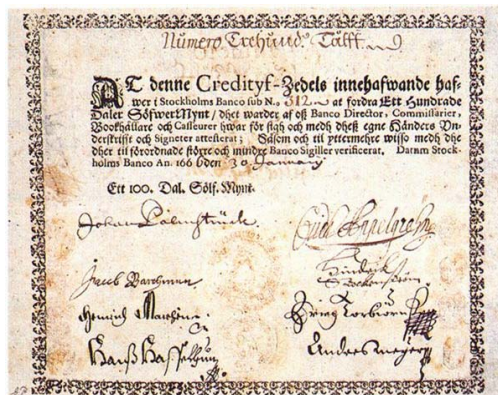 Numero Trehund. Tålff.
AT denne Credityf-Zedels innehafwande haf-
wer i Stockholms Banco sub N.o 312 at fordra Ett Hundrade
Daler SölfwerMynt / dhet warder af oß Banco Director, Commissarier,
Bookhållare och Casseurer hwar för sigh och medh dheß egne Händers Un-
derskrifft och Signeter attesterat; Såsom och til yttermehre wisso medh dhe
dher til förordnade större och mindre Banco Sigiller verificerat. Datum Stock-
holms Banco An. 166 6 den 30 January
Ett 100. Dal. Sölf. Mynt.
Johan Palmstruck
Jacob
Hinrich
Hanß
Anders Meijer